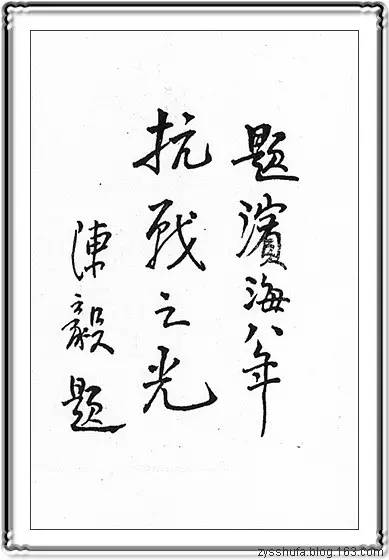 题濱海八年
抗战之光
陳毅题
zysshufa.blog.163.com